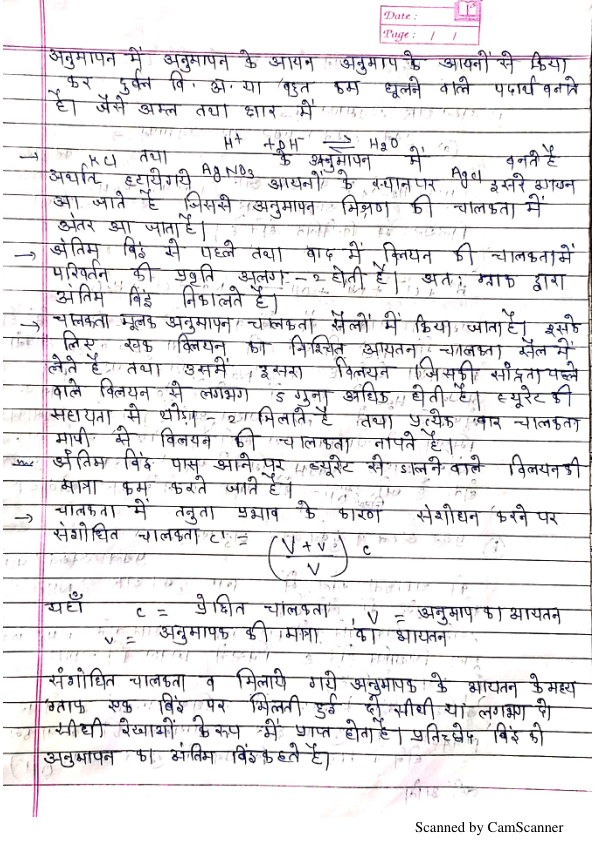 Date :
Page : / /
अनुमापन में अनुमापन के आयन अनुमाप के आयनों से क्रिया
कर दुर्बल वि. अ. या बहुत कम घूलने वाले पदार्थ बनाते
है। जैसे अम्ल तथा क्षार में
H⁺ + OH⁻ ⇌ H₂O
→ KCl तथा AgNO₃ के अनुमापन में AgCl बनते है
अर्थात् आयनों के स्थान पर दूसरे आयन
आ जाते है जिससे अनुमापन मिश्रण की चालकता में
अंतर आ जाता है।
→ अंतिम बिंदु से पहले तथा बाद में विलयन की चालकता में
परिवर्तन की प्रवृति अलग - २ होती है। अत : ग्राफ द्वारा
अंतिम बिंदु निकालते है।
→ चालकता मूलक अनुमापन चालकता सैलों में किया जाता है। इसके
लिए एक विलयन का निश्चित आयतन चालकता सैल में
लेते है तथा उसमें दूसरा विलयन (जिसकी सांद्रता पहले
वाले विलयन से लगभग 5 गुना अधिक होती है। ब्यूरेट की
सहायता से थोड़ा - २ मिलाते है तथा प्रत्येक बार चालकता
मापी से विलयन की चालकता नापते है।
अंतिम बिंदु पास आने पर ब्यूरेट से डालने वाले विलयन की
मात्रा कम करते जाते है।
→ चालकता में तनुता प्रभाव के कारण संशोधन करने पर
संशोधित चालकता c' = (V + v / V) c
यहाँ c = प्रेक्षित चालकता , V = अनुमाप का आयतन
v = अनुमापक की मात्रा का आयतन
संशोधित चालकता व मिलाये गये अनुमापक के आयतन के मध्य
ग्राफ एक बिंदु पर मिलती हुई दो सीधी या लगभग दो
सीधी रेखाओं के रूप में प्राप्त होता है। प्रतिच्छेद बिंदु को
अनुमापन का अंतिम बिंदु कहते है।
Scanned by CamScanner